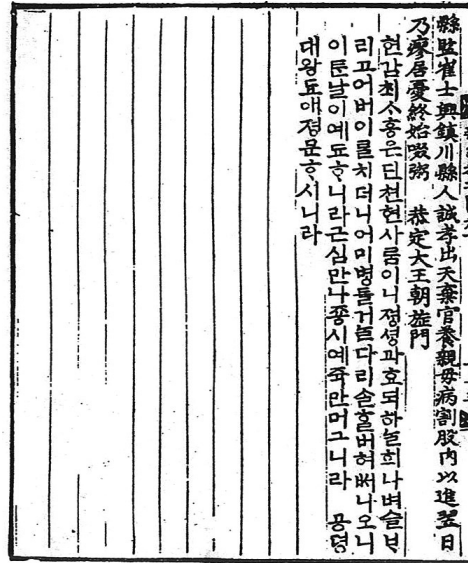 縣監崔士興鎭川縣人誠孝出天棄官養親母病割股肉以進翌日
乃瘳居憂終始啜粥 恭定大王朝旌門
현감최ᄉ흥은딘쳔현사ᄅᆷ이니졍셩과효되하ᄂᆞᆯ희나벼슬ᄇᆞ
리고어버이ᄅᆞᆯ치더니어미병들거ᄂᆞᆯ다리ᄉᆞᆯᄒᆞᆯ버혀ᄡᅥ나오니
이튼날이예됴ᄒᆞ니라근심만나죵시예쥭만머그니라 공뎡
대왕됴애졍문ᄒᆞ시니라